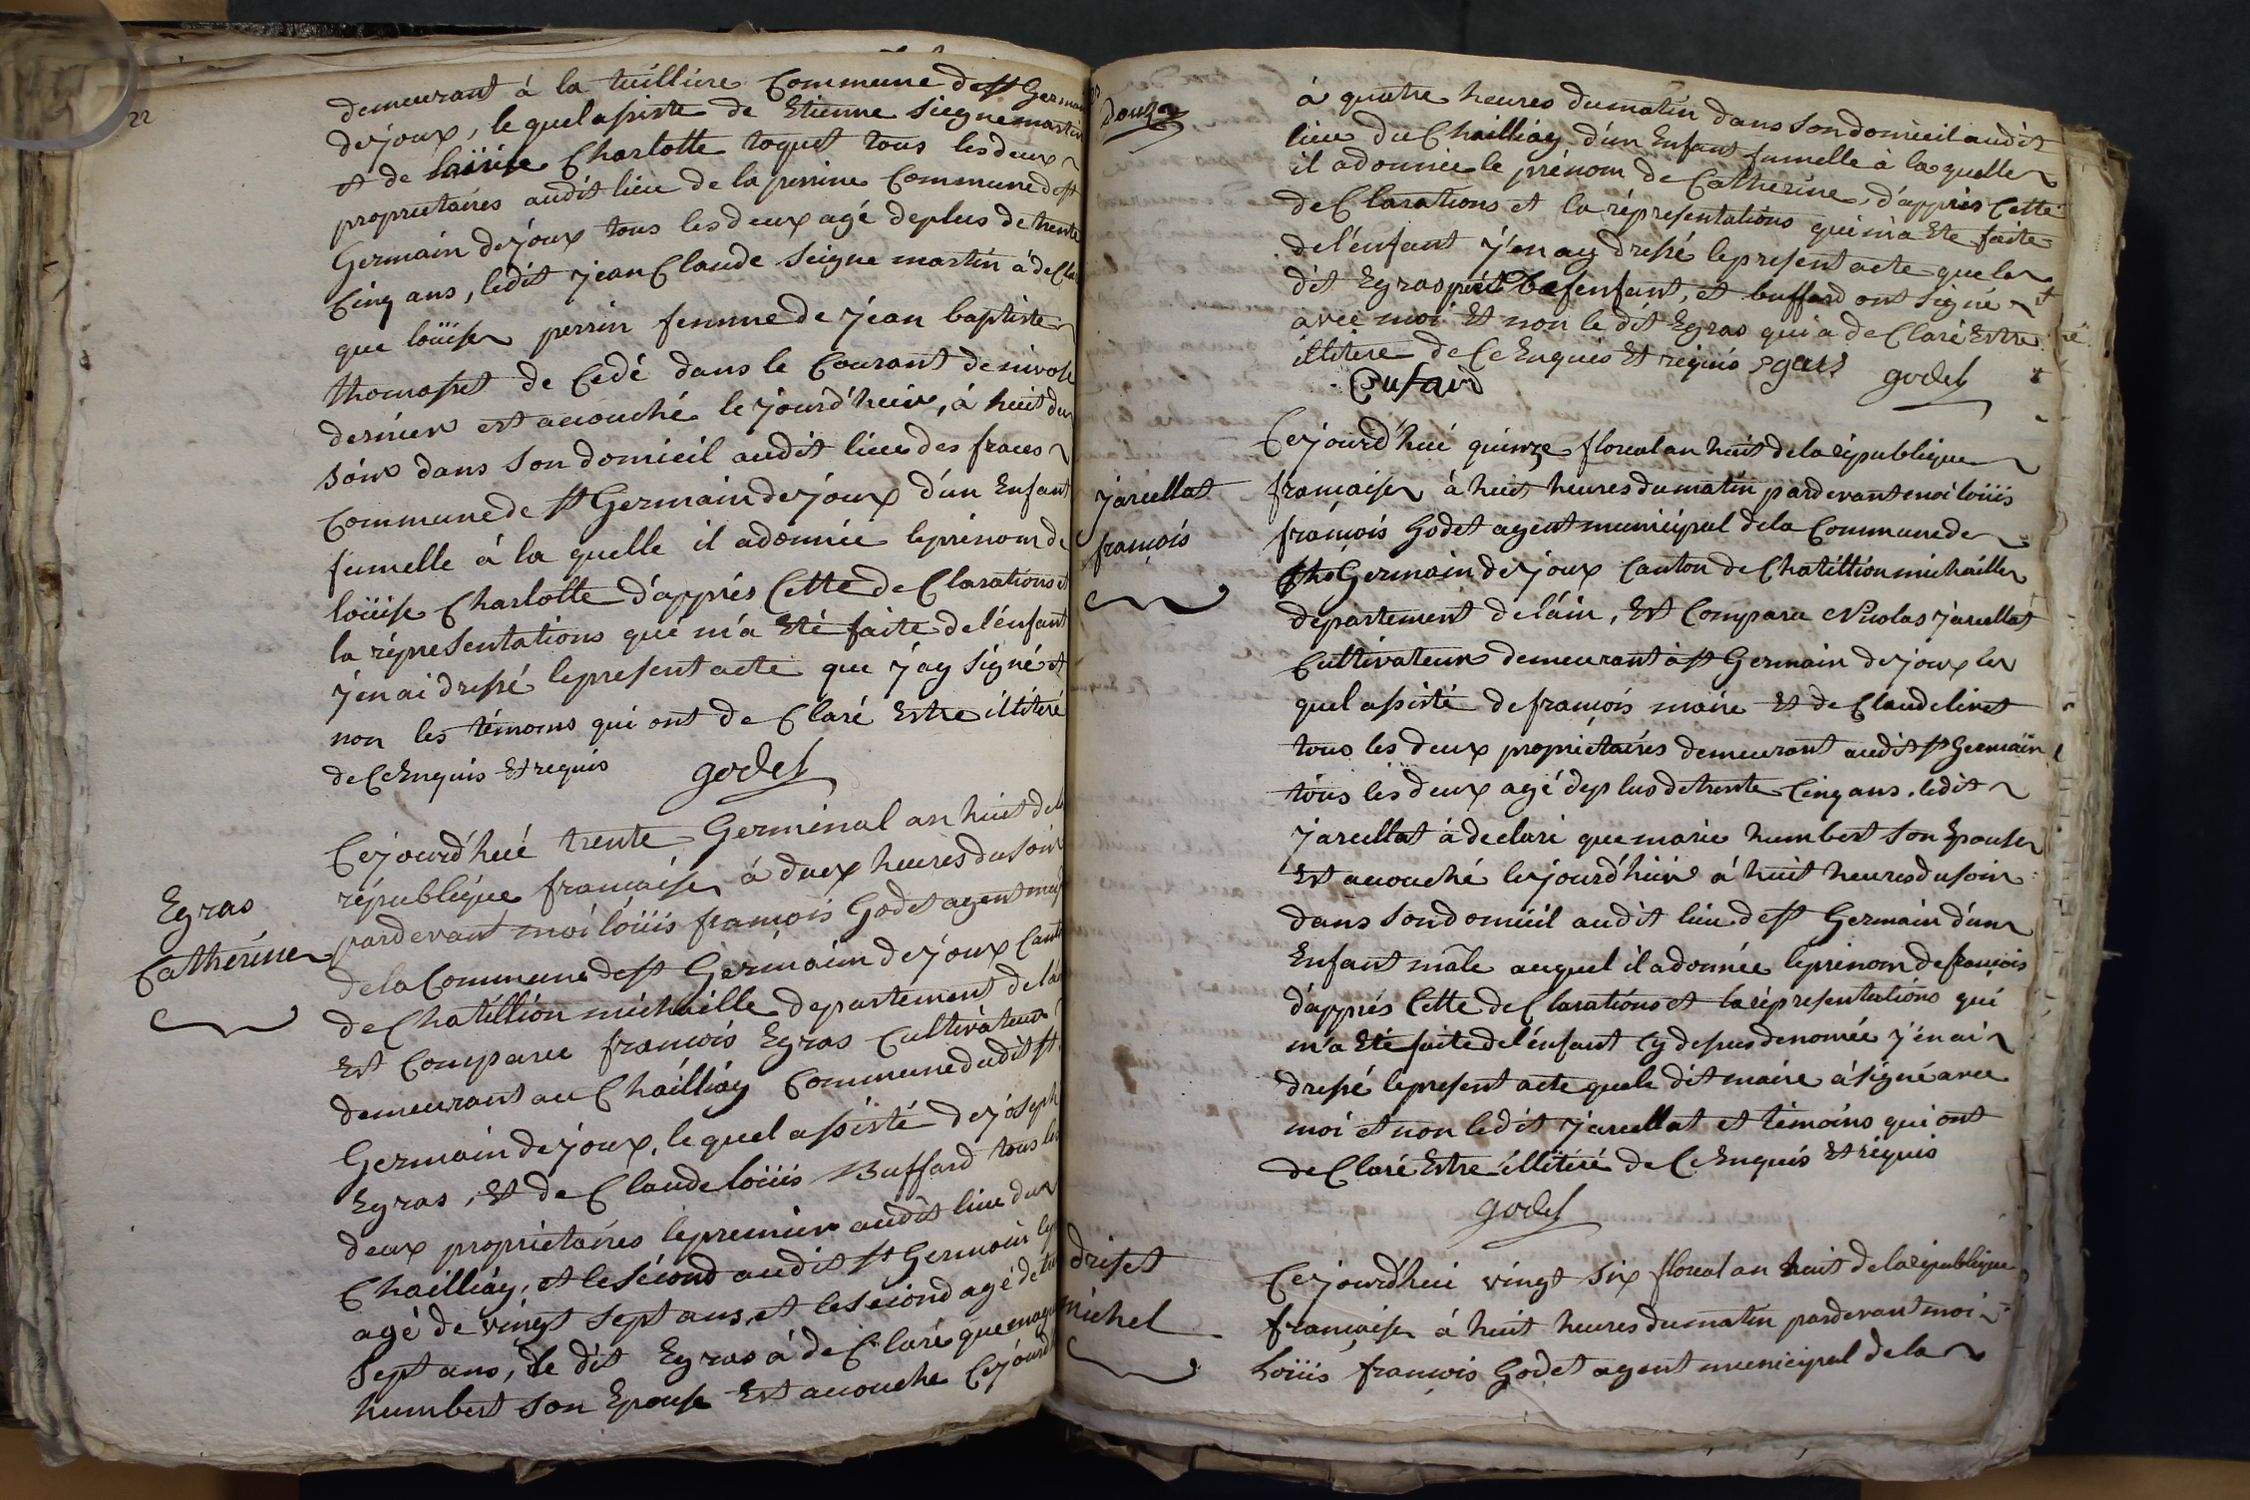 22
demeurant à la tuilliere Commune de st Germain
dejoux, le quel assiste de Etienne Seignemartin
et de Louise Charlotte toquet tous les deux
proprietaires audit lieu de la perrine Commune de st
Germain dejoux tous les deux agé deplus de trente
Cinq ans, ledit jean Claude Seigne martin à de Cla
que loüise perrin femme de jean baptiste
thomasset de Cedé dans le Courant de nivose
dernier est acouché le jourd'huir, à huit du
soir dans son domicil audit lieu des fraces
Commune de st Germain dejoux d'un Enfant
fumelle à la quelle il adonnée leprénom de
loüise Charlotte d'apprés Cette de Clarations et
la répresentations qui m'a Eté faite de l'énfant
j'en ai dressé lepresent acte que j'ay signé et
non les témoins qui ont de Claré Estre illiteré
de Ce Enquis Et requis godet
Egras
Catherine
Cejourd'hué trente Germinal an huit de la
république françaiser à deux heures du soir
pardevant moi loüis françois Godet agent mup
de la Commune de st Germain dejoux Cant
de Chatillion michaille departement de la
Est Comparu françois Egras Cultivateur
demeurant au Chailliay Commune dudit st
Germain dejoux, le quel assisté de joseph
Egras, Et de Claude loüis Buffard tous les
deux proprietaires lepremier audit lieu du
Chailliay, et le sécond audit st Germain le p
agé de vingt sept ans, et le sécond agé de tr
Sept ans, le dit Egras à de Claré que
humbert son Epouse Est acouche Cejourd
Douze
à quatre heures dumatin dans son domicil audit
lieu du Chailliay d'un Enfant fumelle à la quelle
il adonnée le prénom de Catherine, d'apprés Cette
de Clarations et la répresentations qui m'a Ete faite
de l'énfant j'en ay dressé lepresent acte que le
dit Egras de l'enfant, et buffard ont signé
avec moi Et non le dit Egras qui a de Claré Estre
illitere de Ce Enquis Et requis Egras godet
Bufard
jarcellat
françois
Cejourd'hui quinze floreal an huit de la république
françaiser à huit heures du matin pardevant moi loüis
françois Godet agent municipal de la Commune de
st Germain dejoux Canton de Chatillion michaille
departement de láin, Est Comparu Nicolas jarcellat
Cultivateur demeurant à st Germain dejoux le
quel assisté de françois maire Et de Claude livet
tous les deux proprietaires demeurant audit st Germain
tous les deux agé deplus de trente Cinq ans. ledit
jarcellat à declaré que marie humbert son Epouse
Est acouché lejourd'huir à huit heures du soir
dans son domicil audit lieu de st Germain d'un
Enfant mâle auquel il adonnée leprénom de françois
d'apprés Cette de Clarations et la répresentations qui
m'a Eté faite de l'énfant Cy dessus denomée j'en ai
dressé lepresent acte que le dit maire à signé avec
moi et non ledit jarcellat et témoins qui ont
de Claré Estre illiteré de Ce Enquis Et réquis
godet
driset
michel
Cejourd'hui vingt Six floreal an huit de la république
françaiser à huit heures du matin pardevant moi
loüis françois Godet agent municipal de la